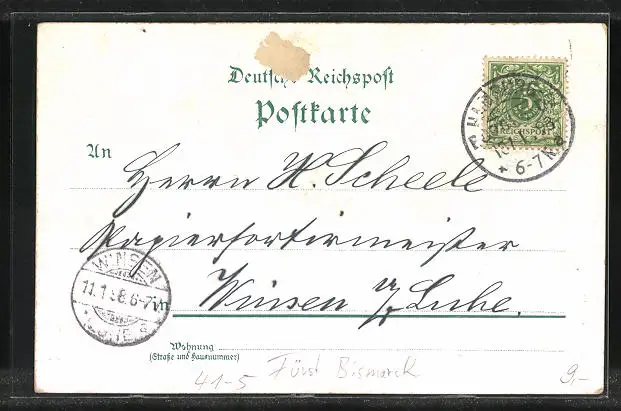 Deutsche Reichspost
Postkarte
REICHSPOST
6-7 N
An
Herrn H. Scheele
Papiersortirmeister
WINSEN
11.1.98.6-7
in
Winsen a/ Luhe.
Wohnung
(Straße und Hausnummer)
41-5 Fürst Bismarck 9,-